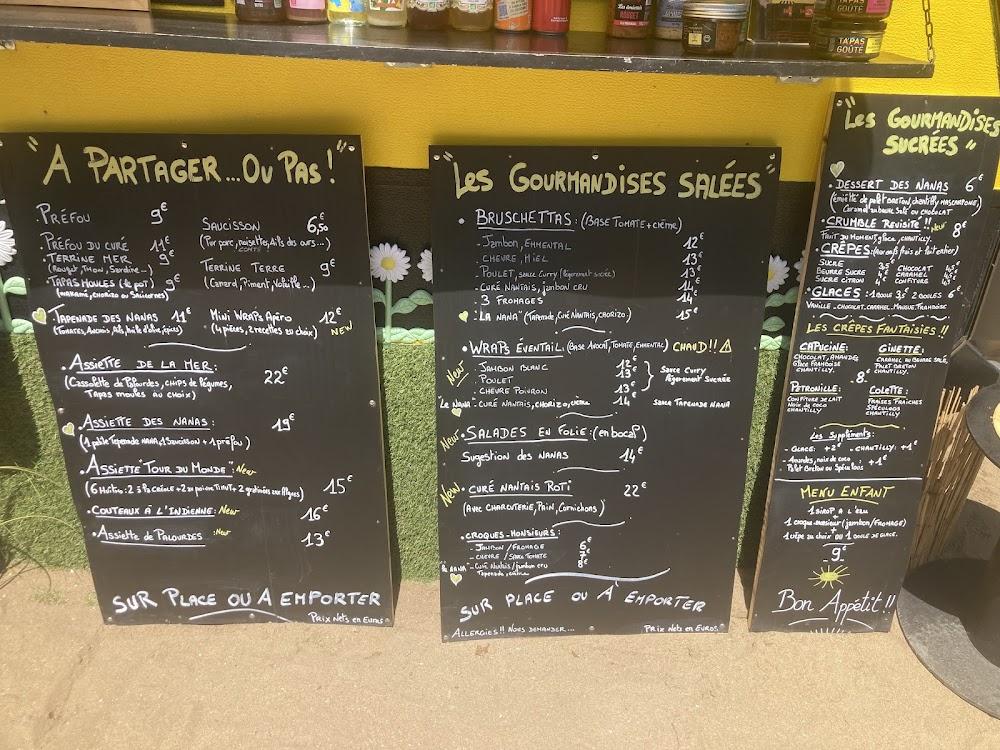 "A PARTAGER...OU PAS!"
PRÉFOU 9€
. PRÉFOU DU CURÉ 11€
. TERRINE MER 9€
(Rouget, Thon, Sardine...)
. TAPAS MOULES (le pot) 9€
TAPENADE DES NANAS 11€
SAUCISSON 6,50€
(Pur porc, noisettes, ails des ours...)
TERRINE TERRE 9€
(Canard, Piment, Volaille...)
MINI WRAPS APÉRO 12€
(4 pièces, 2 recettes au choix) NEW
. ASSIETTE DE LA MER: 22€
(Cassolette de Palourdes, CHIPS de légumes,
TAPAS moules au choix)
. ASSIETTE DES NANAS: 19€
(1 petite Tapenade NANA, 1 Saucisson + 1 préfou)
. ASSIETTE "TOUR DU MONDE": New 15€
. COUTEAUX À L'INDIENNE: New 16€
. ASSIETTE DE PALOURDES :New 13€
SUR PLACE OU A EMPORTER
PRIX NETS EN EUROS
"LES GOURMANDISES SALÉES"
. BRUSCHETTAS: (BASE TOMATE + CRÈME)
- JAMBON, EMMENTAL 12€
- CHEVRE, MIEL 13€
- POULET, sauce Curry (légèrement sucrée) 13€
- CURÉ NANTAIS, jambon cru 14€
- 3 FROMAGES 14€
"LA NANA" (Tapenade, Curé Nantais, CHORIZO) 15€
. WRAPS ÉVENTAIL: (BASE AVOCAT, TOMATE, EMMENTAL) CHAUD!!
New - JAMBON BLANC
- POULET 13€
- CHEVRE POIVRON 13€
Sauce Curry
légèrement Sucrée
"LA NANA" - CURÉ NANTAIS, CHORIZO 14€ Sauce TAPENADE NANA
New . SALADES EN FOLIE: (en bocal)
Sugestion des NANAS 14€
New . CURÉ NANTAIS ROTI 22€
(AVEC CHARCUTERIE, PAIN, Cornichons)
. CROQUES-MONSIEURS:
- JAMBON/FROMAGE 6€
- CHEVRE/SAUCE TOMATE 7€
"LA NANA" - CURÉ NANTAIS/jambon cru 8€
SUR PLACE OU À EMPORTER
ALLERGIES!! NOUS DEMANDER...
PRIX NETS EN EUROS
"LES GOURMANDISES
SUCRÉES"
. DESSERT DES NANAS 6€
(émietté de palet BRETON, chantilly MASCARPONE,
Caramel au beurre Salé ou CHOCOLAT)
. CRUMBLE REVISITÉ!! New 8€
FRUIT DU MOMENT, glace, CHANTILLY.
. CRÊPES: (oeufs frais et lait entier)
SUCRE
BEURRE SUCRE
SUCRE CITRON
CHOCOLAT
CARAMEL
CONFITURE
. GLACES: 1 BOULE 3,5€ 2 BOULES 6€
VANILLE, CHOCOLAT, CARAMEL, MANGUE, FRAMBOISE
LES CRÊPES FANTAISIES!!
CAPUCINE:
CHOCOLAT, AMANDES
Glace FRAMBOISE
CHANTILLY.
GINETTE:
CARAMEL AU BEURRE SALÉ,
PALET BRETON
CHANTILLY.
.8.€
PETRONILLE:
CONFITURE DE LAIT
NOIX DE COCO
CHANTILLY
COLETTE:
FRAISES FRAICHES
SPECULOOS
CHANTILLY
Les Suppléments:
- GLACE: +2€ - CHANTILLY: +1€
- Amandes, noix de coco
Palet Breton ou Spéculoos : +1€
MENU ENFANT
1 SIROP A L'EAU
+
1 croque-monsieur (jambon/FROMAGE)
+
1 crêpe au choix OU 1 BOULE DE GLACE.
9€
Bon Appétit!!
TAPAS
GOUTÉ